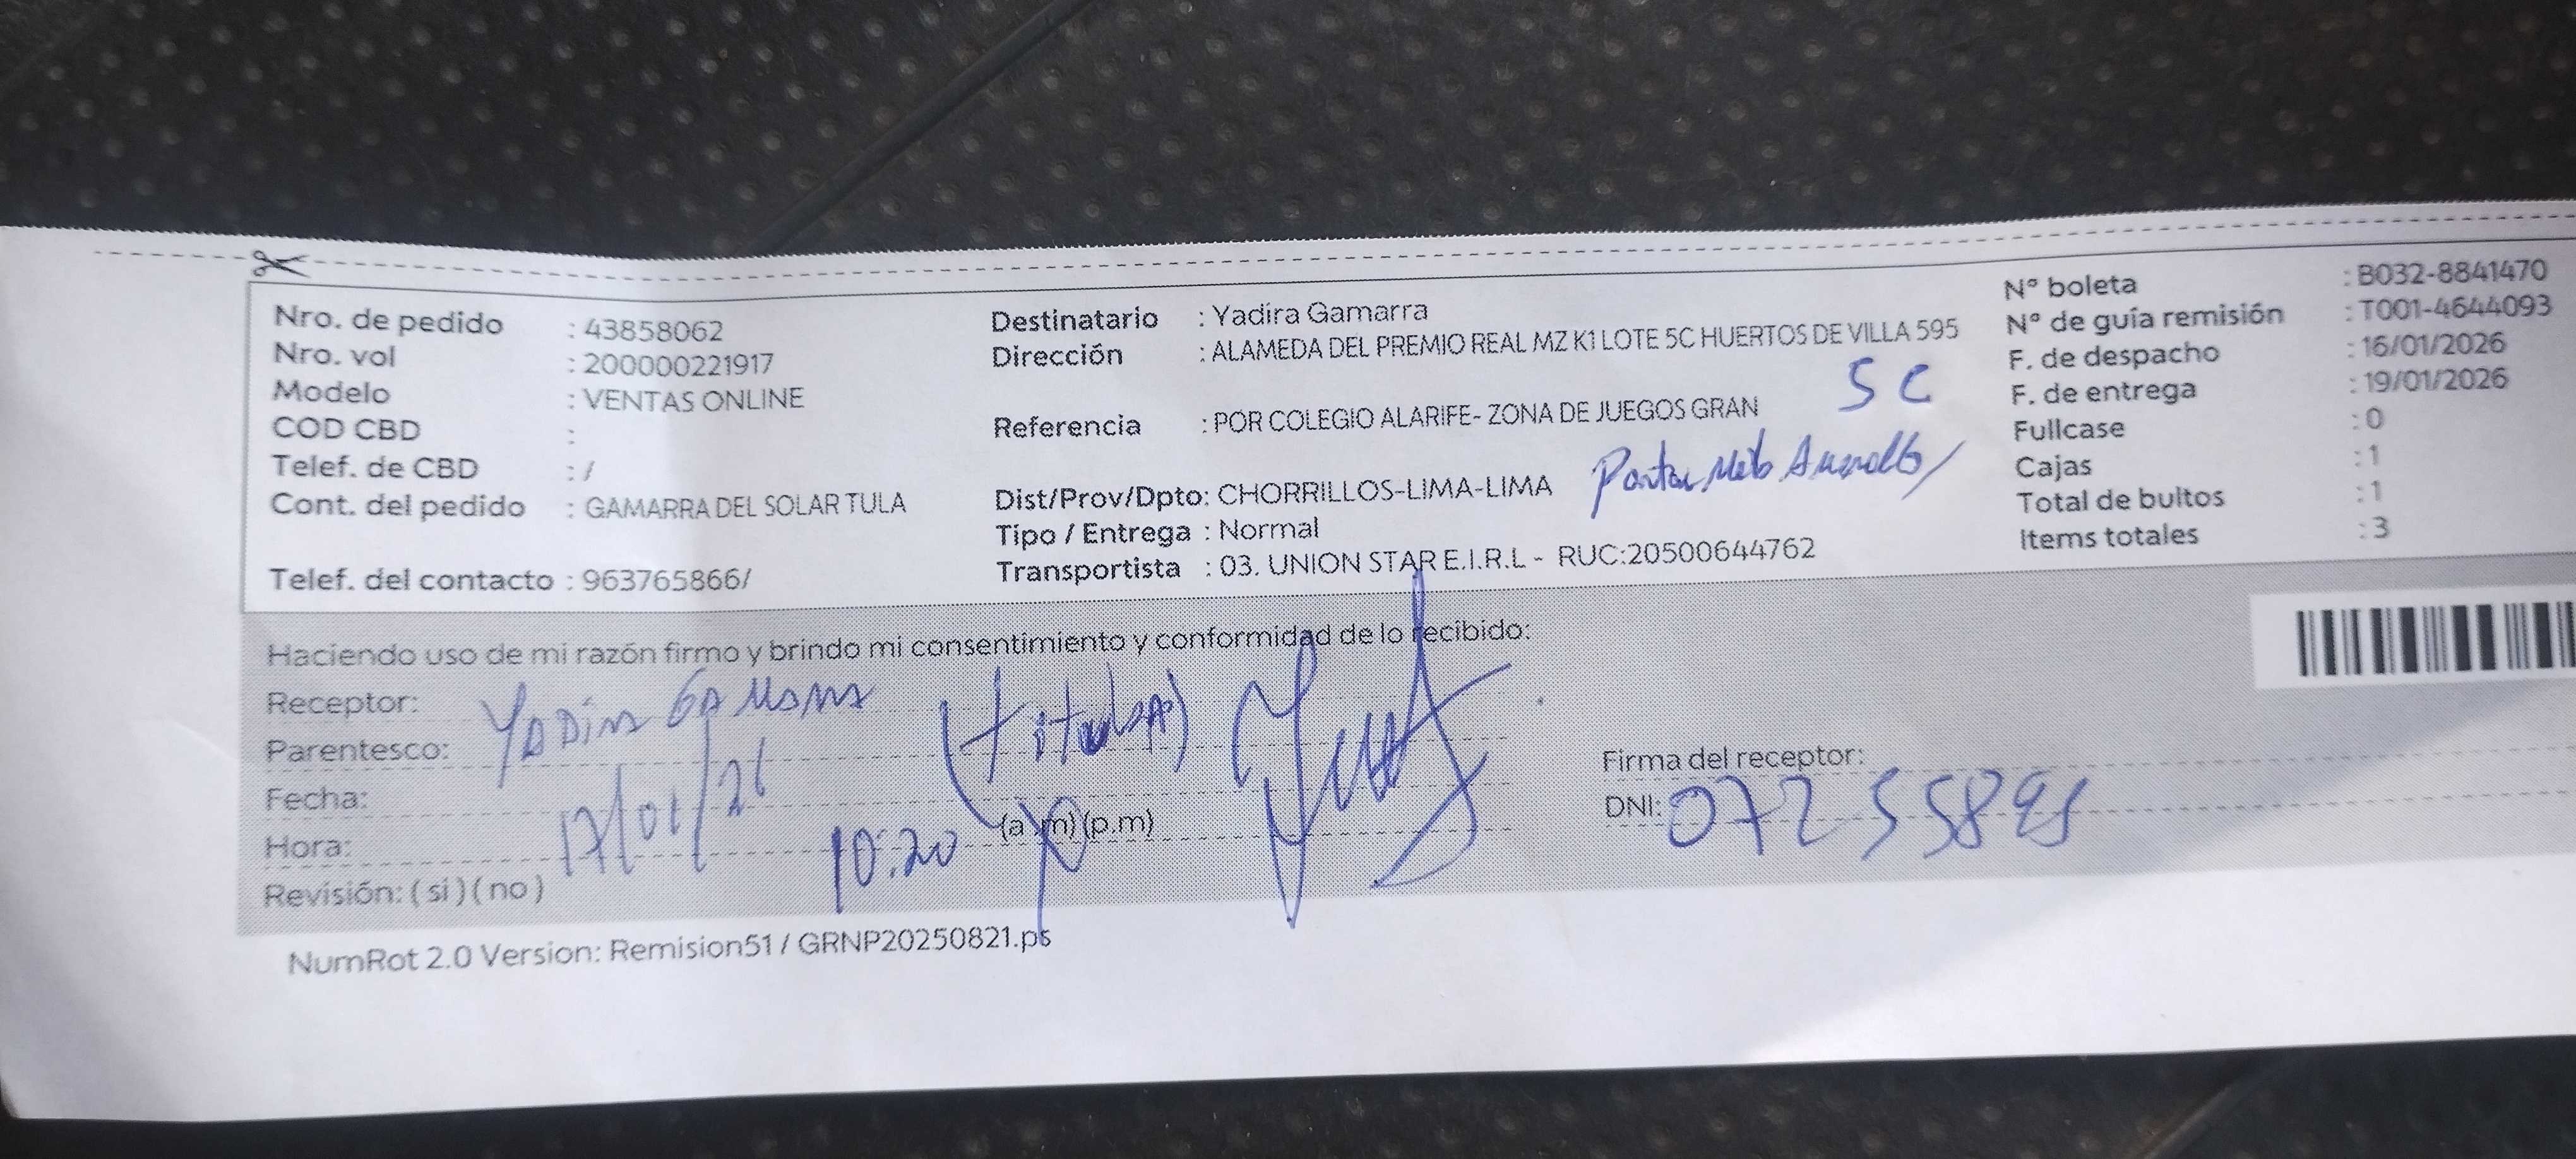 Nro. de pedido : 43858062
Nro. vol : 200000221917
Modelo : VENTAS ONLINE
COD CBD :
Telef. de CBD : /
Cont. del pedido : GAMARRA DEL SOLAR TULA
Telef. del contacto : 963765866/
Destinatario : Yadira Gamarra
Dirección : ALAMEDA DEL PREMIO REAL MZ K1 LOTE 5C HUERTOS DE VILLA 595
5C
Referencia : POR COLEGIO ALARIFE- ZONA DE JUEGOS GRAN
Dist/Prov/Dpto: CHORRILLOS-LIMA-LIMA
Tipo / Entrega : Normal
Transportista : 03. UNION STAR E.I.R.L - RUC:20500644762
N° boleta : B032-8841470
N° de guía remisión : T001-4644093
F. de despacho : 16/01/2026
F. de entrega : 19/01/2026
Fullcase : 0
Cajas : 1
Total de bultos : 1
Items totales : 3
Haciendo uso de mi razón firmo y brindo mi consentimiento y conformidad de lo recibido:
Receptor: Yadira Gamarra (titular)
Parentesco:
Fecha: 17/01/26
Hora: 10:20 (a.m) (p.m)
Revisión: ( si ) ( no )
Firma del receptor:
DNI: 07255895
NumRot 2.0 Version: Remision51 / GRNP20250821.ps